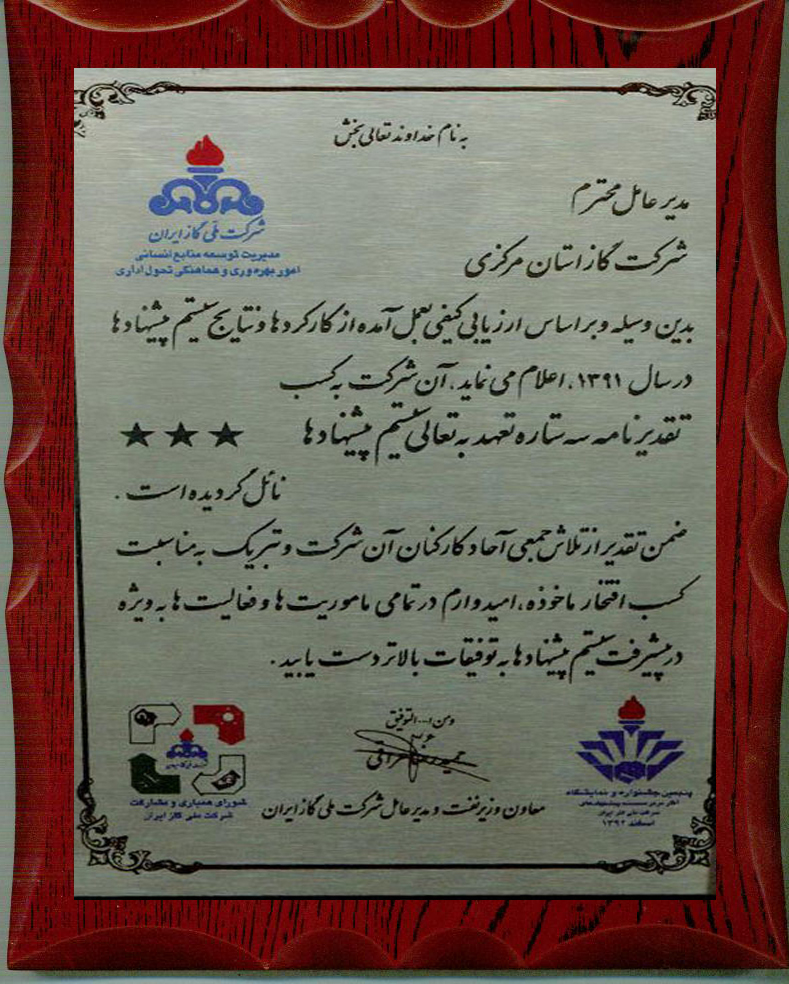 به نام خداوند تعالی بخش
شرکت ملی گاز ایران
مدیریت توسعه منابع انسانی
امور بهره وری و هماهنگی تحول اداری
مدیر عامل محترم
شرکت گاز استان مرکزی
بدین وسیله و بر اساس ارزیابی کیفی بعمل آمده از کارکردها و نتایج سیستم پیشنهادها
در سال ۱۳۹۱، اعلام می نماید، آن شرکت به کسب
تقدیرنامه سه ستاره تعهد به تعالی سیستم پیشنهادها ★ ★ ★
نائل گردیده است .
ضمن تقدیر از تلاش جمعی آحاد کارکنان آن شرکت و تبریک به مناسبت
کسب افتخار ماخوذه، امیدوارم در تمامی ماموریت ها و فعالیت ها به ویژه
در پیشرفت سیستم پیشنهادها به توفیقات بالاتر دست یابید.
ومن ا... التوفیق
حمیدرضا عراقی
معاون وزیر نفت و مدیر عامل شرکت ملی گاز ایران
شورای همیاری و مشارکت
شرکت ملی گاز ایران
پنجمین جشنواره و نمایشگاه
شرکت ملی گاز ایران
اسفند ۱۳۹۲